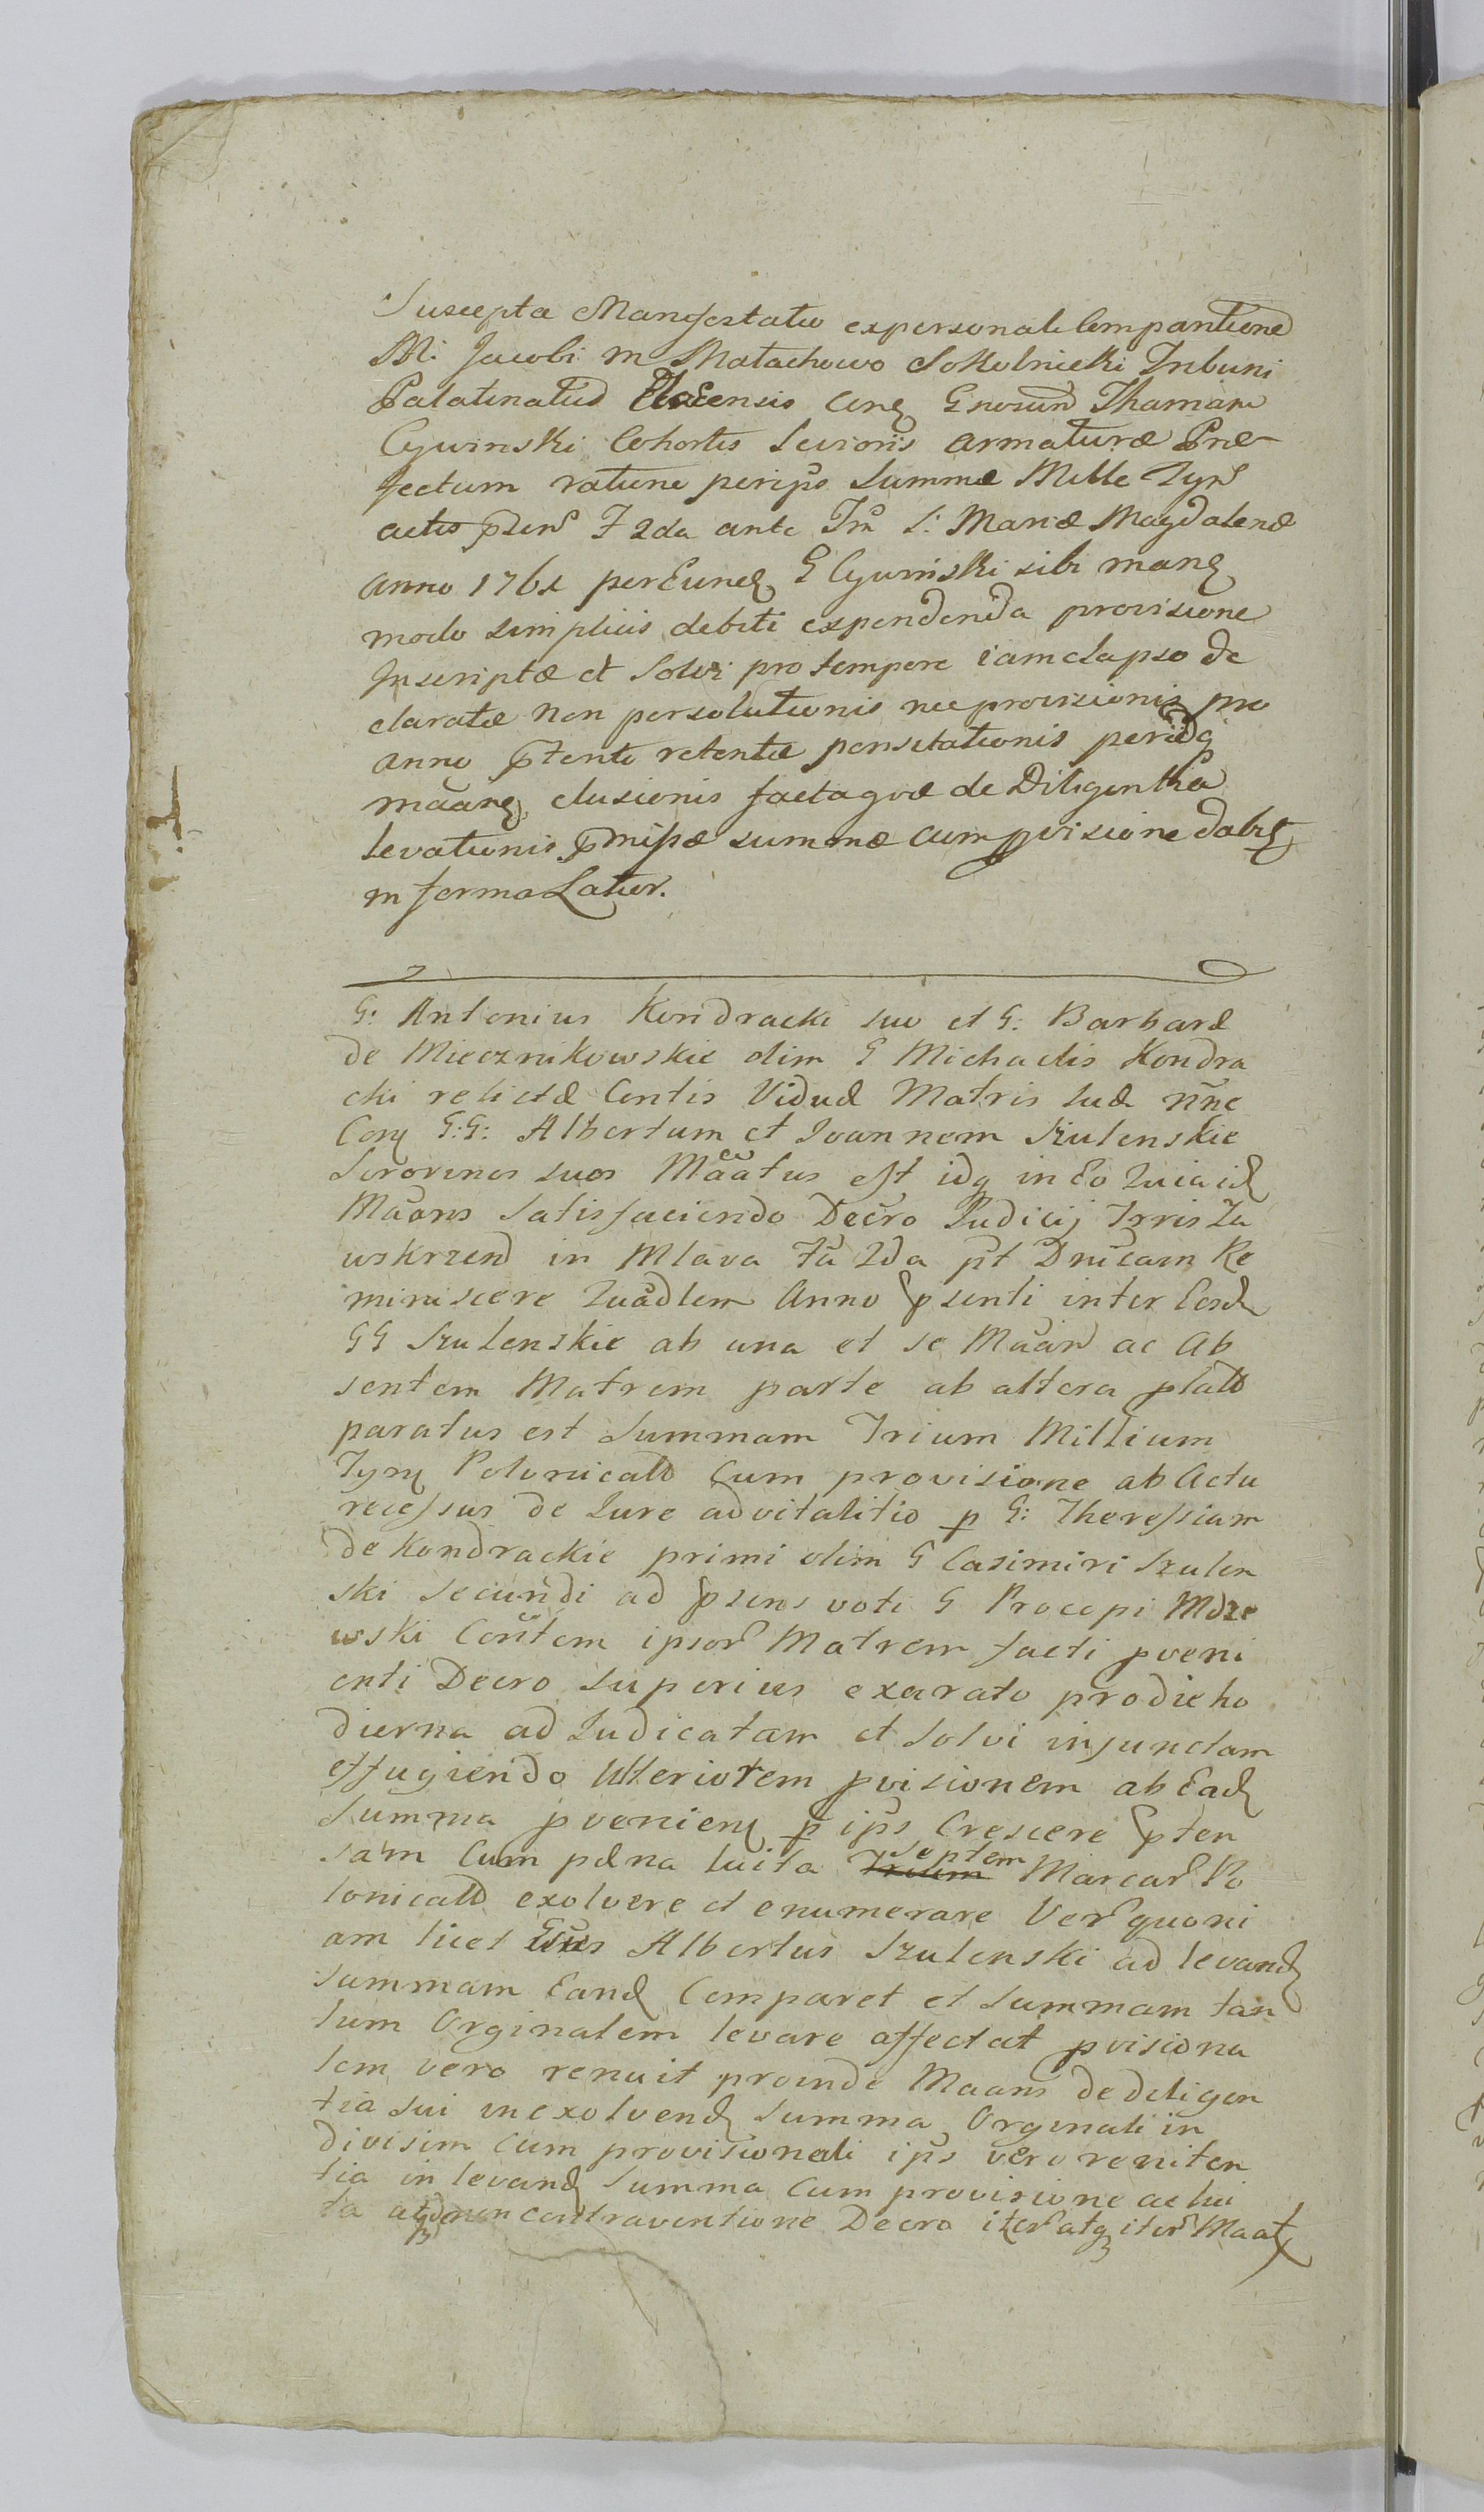 Suscepta Manifestatio expersonali Comparitione
M. Jacobi in Małachowo Sokolnicki Tribuni
Palatinatus Plocensis Cong Gnosum Thomam
Cywinski Cohortis Levioris armaturæ Præ-
fectum ratione per ips Summæ Mille Tynf
actis pzen F 2da ante Fm S. Mariæ Magdalenæ
anno 1761 per Eund G Cywinski sibi man
modo simplicis debiti expendenda provisione
Inscriptæ et Solvi pro tempore iam elapso de
claratæ non persolutionis nec provisionis pro
anno pzenti retentæ pensitationis per id
maan elusionis factaqve de Diligenthia
levationis pmissæ summæ cum pvisione dabit
in forma Latior.
G: Antonius Kondracki suo et G: Barbaræ
de Miecznikowskie olim G Michaelis Kondra
cki relictæ Contis Viduæ Matris suæ nne
Con G:G: Albertum et Joannem Szulenskie
Sororinos suos Maatus est idq in Eo Quia id
Maans Satisfaciendo Decro Judicij Trris Za
wskrzen in Mlava fa 2da pt Dnicam Re
miniscere Quadlem Anno psenti inter Eosd
GG Szulenskie ab una et se Maan ac Ab
sentem Matrem parte ab altera plato
paratus est Summam Trium Millium
Tynf Polonicali Cum provisione ab Actu
recessus de Jure advitalitio p G: Theressiam
de Kondrackie primi olim G Casimiri Szulen
ski Secundi ad psens voti G Procopi Mdze
wski Contem ipsor Matrem facti pveni
enti Decro Superius exarato pro die ho
dierna adJudicatam et Solvi injunctam
effugiendo Ulteriorem pvisionem ab Ead
Summa pvenien p ips Crescere pten
sam Cum pæna luita Trium septem Marcar Po
lonicali exolvere et enumerare Ver quoni
am licet Gnus Albertus Szulenski ad levand
Summam Eand Comparet et Summam tan
tum Orginalem levare affectat pvisiona
lem vero renuit proinde Maans de diligen
tia sui in exolvend Summa Orginali in
divisim cum provisionali ips vero reniten
tia in levand Summa Cum provisione ac lui
ta contraventione Decro iter atq iter Maat